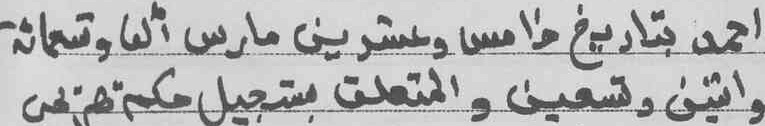 احمد بتاريخ خامس وعشرين مارس ألف وتسعمائة
واثنين وتسعين والمتعلق بتسجيل حكم